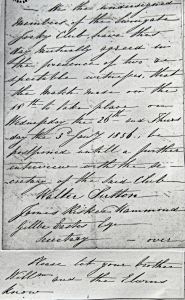 We the undersigned
Members of the Swingate
Jocky Club have this
day mutually agreed in
the presence of two re
spectable witnesses, that
the match made on the
18th to take place on
Wednesday the 26th and Thurs
day the 3d 1856. be
postponed untill a further
interview with the Se
cretary of the said Club
Walter Sutton
James Hammond
Secretary - over
Please let your brother
Willm and the
know